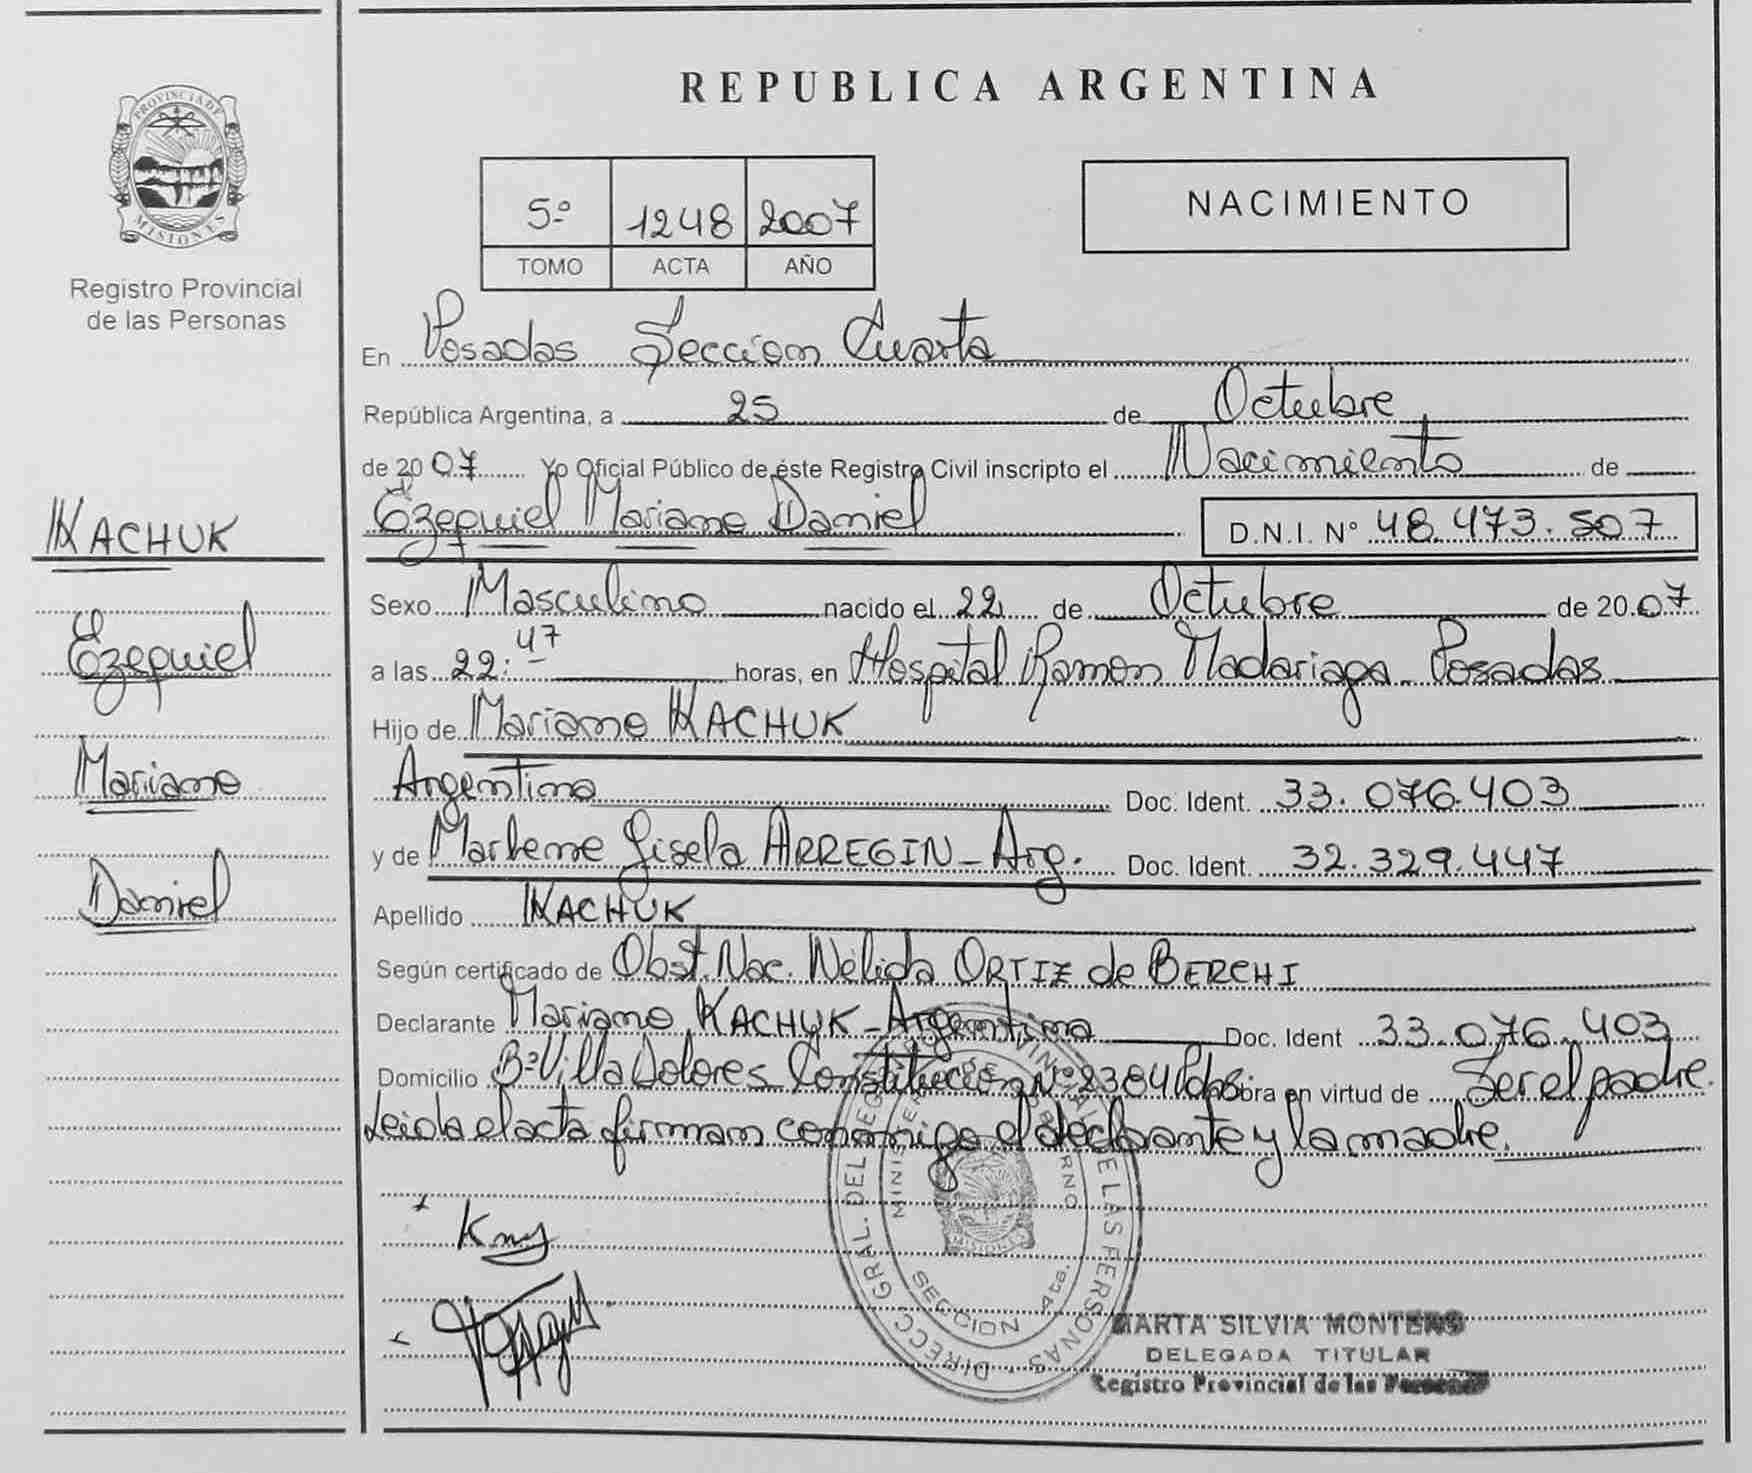 PROVINCIA DE
MISIONES
Registro Provincial
de las Personas
KACHUK
Ezequiel
Mariano
Daniel
REPUBLICA ARGENTINA
5º 1248 2007
TOMO ACTA AÑO
NACIMIENTO
En Posadas Seccion Cuarta
República Argentina, a 25 de Octubre
de 2007 Yo Oficial Público de éste Registro Civil inscripto el Nacimiento de
Ezequiel Mariano Daniel D.N.I. Nº 48.473.507
Sexo Masculino nacido el 22 de Octubre de 2007
a las 22:47 horas, en Hospital Ramon Madariaga Posadas
Hijo de Mariano KACHUK
Argentino Doc. Ident. 33.076.403
y de Marlene Gisela ARREGIN - Arg. Doc. Ident. 32.329.447
Apellido KACHUK
Según certificado de Obst. Nac. Nelida ORTIZ de BERCHI
Declarante Mariano KACHUK - Argentino Doc. Ident 33.076.403
Domicilio Bº Villa Dolores Constitucion Nº 2384 Pdas obra en virtud de Ser el padre.
Leida el acta firman conmigo el declarante y la madre.
DIRECC. GRAL. DEL REG. PROVINCIAL DE LAS PERSONAS
SECCION 4ta.
MISIONES
MARTA SILVIA MONTERO
DELEGADA TITULAR
Registro Provincial de las Personas